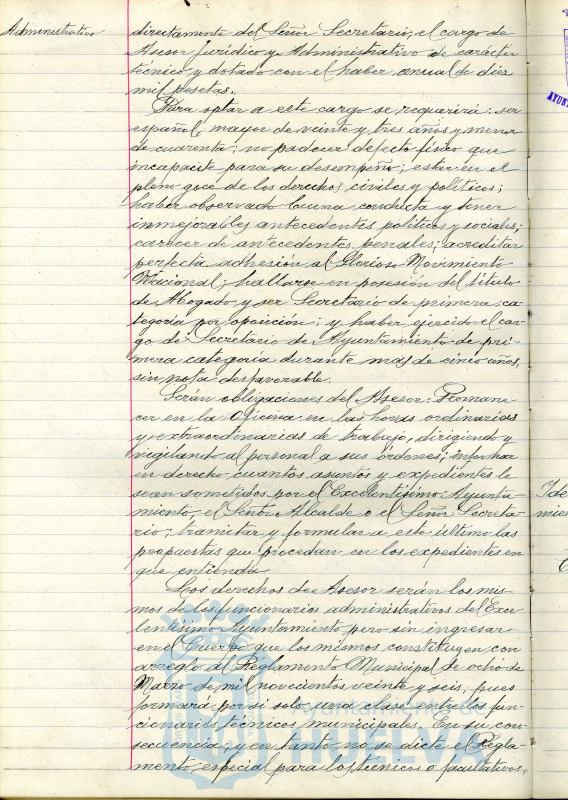 Administrativo
directamente del Señor Secretario, el cargo de
Asesor Jurídico y Administrativo de carácter
técnico y dotado con el haber anual de diez
mil pesetas.
Para optar a este cargo se requerirá: ser
español, mayor de veinte y tres años y menor
de cuarenta; no padecer defecto físico que
incapacite para su desempeño; estar en el
pleno goce de los derechos civiles y políticos;
haber observado buena conducta y tener
inmejorables antecedentes políticos y sociales;
carecer de antecedentes penales; acreditar
perfecta adhesión al Glorioso Movimiento
Nacional; hallarse en posesión del título
de Abogado y ser Secretario de primera ca-
tegoría por oposición; y haber ejercido el car-
go de Secretario de Ayuntamiento de pri-
mera categoría durante más de cinco años,
sin nota desfavorable.
Serán obligaciones del Asesor: Permane
cer en la oficina en las horas ordinarias
y extraordinarias de trabajo, dirigiendo y
vigilando al personal a sus órdenes; informar
en derecho cuantos asuntos y expedientes le
sean sometidos por el Excelentísimo Ayunta-
miento, el Señor Alcalde o el Señor Secreta-
rio; tramitar y formular a este último las
propuestas que procedan en los expedientes en
que entienda
Los derechos de Asesor serán los mis-
mos de los funcionarios administrativos del Exce
lentísimo Ayuntamiento pero sin ingresar
en el Cuerpo que los mismos constituyen, con
arreglo al Reglamento Municipal de ocho de
Marzo de mil novecientos veinte y seis, pues
formará por si solo una clase entre los fun-
cionarios técnicos municipales. En su con-
secuencia, y en tanto no se dicte el Regla-
mento especial para los técnicos o facultativos,
Ayuntamiento de
HUELVA
AYUN
Ide
mien